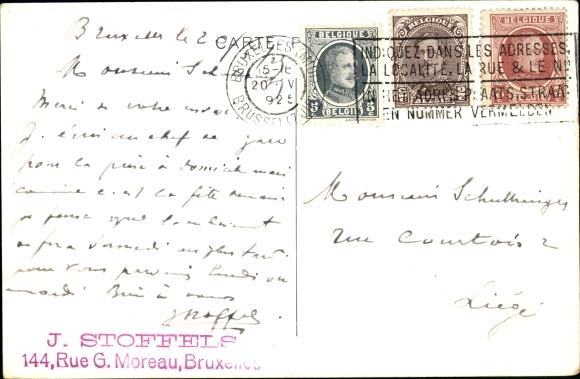 Bruxelles le 2
CARTE P
Monsieur Sch
Merci de votre
J. écris au chef de gare
pour la prise à domicile mais
comme c'est la fête demain
je pense que l'enlèvement
se fera samedi au plus tard
pour vous parvenir lundi ou
mardi Bien à vous
J Stoffels
J. STOFFELS
144, Rue G. Moreau, Bruxelles
BELGIQUE
5 5
BELGIË
BELGIQUE
BELGIQUE
BRUXELLES
20 VI
1925
BRUSSEL
INDIQUEZ DANS LES ADRESSES
LA LOCALITÉ, LA RUE & LE No
IN HET ADRES PLAATS, STRAAT
EN NUMMER VERMELDEN
Monsieur
rue Courtois 2
Liége